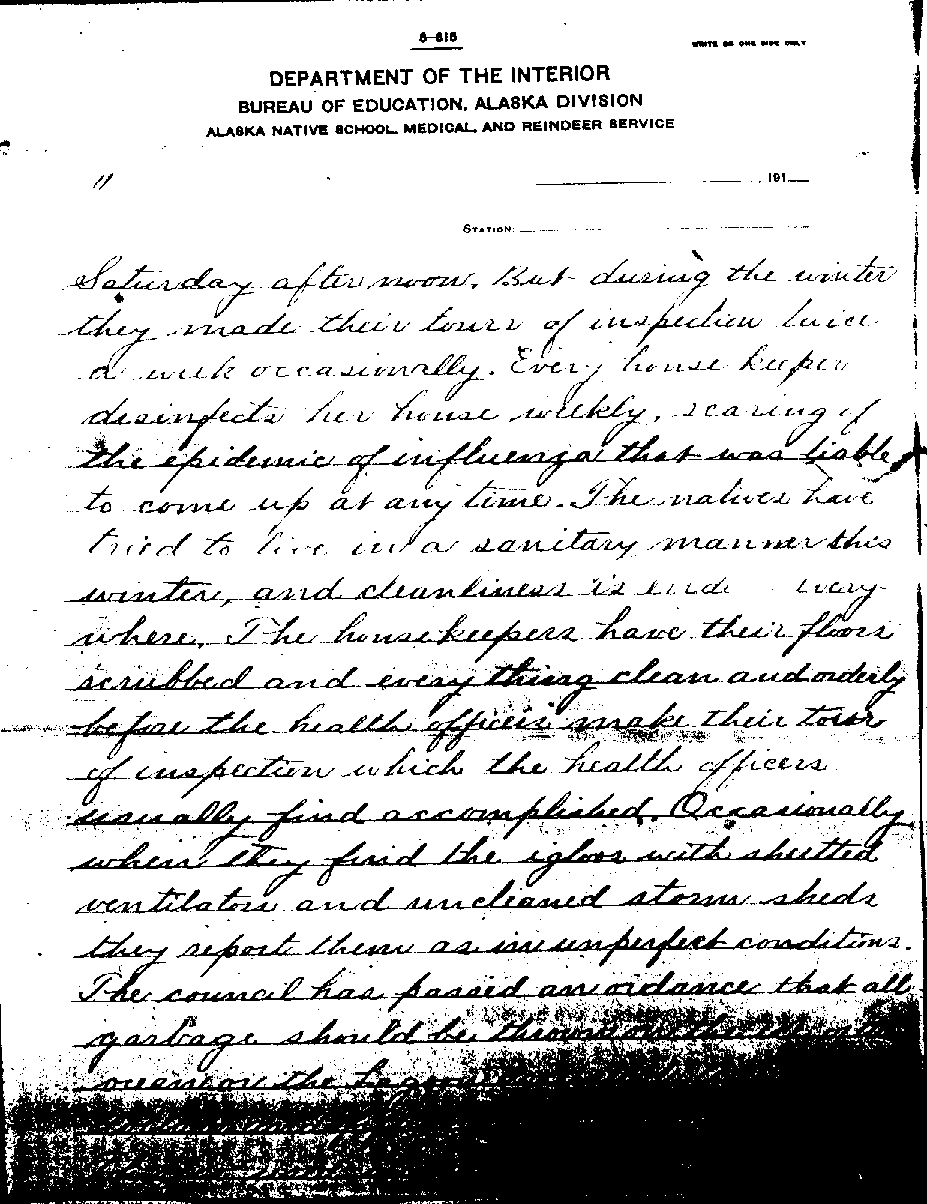 6-616
WRITE ON ONE SIDE ONLY
DEPARTMENT OF THE INTERIOR
BUREAU OF EDUCATION, ALASKA DIVISION
ALASKA NATIVE SCHOOL, MEDICAL, AND REINDEER SERVICE
11
191
STATION:
Saturday afternoon. But during the winter
they made their tours of inspection twice
a week occasionally. Every house keeper
desinfects her house weekly, scaring of
the epidemic of influenza that was liable
to come up at any time. The natives have
tried to live in a sanitary manner this
winter, and cleanliness is every
where. The housekeepers have their floors
scrubbed and every thing clean and orderly
before the health officers make their tour
of inspection which the health officers
usually find accomplished. Occasionally
when they find the igloos with shutted
ventilators and uncleaned storm sheds
they report them as in unperfect conditions.
The council has passed an ordance that all
garbage should be thrown
ocean or the Lagoon